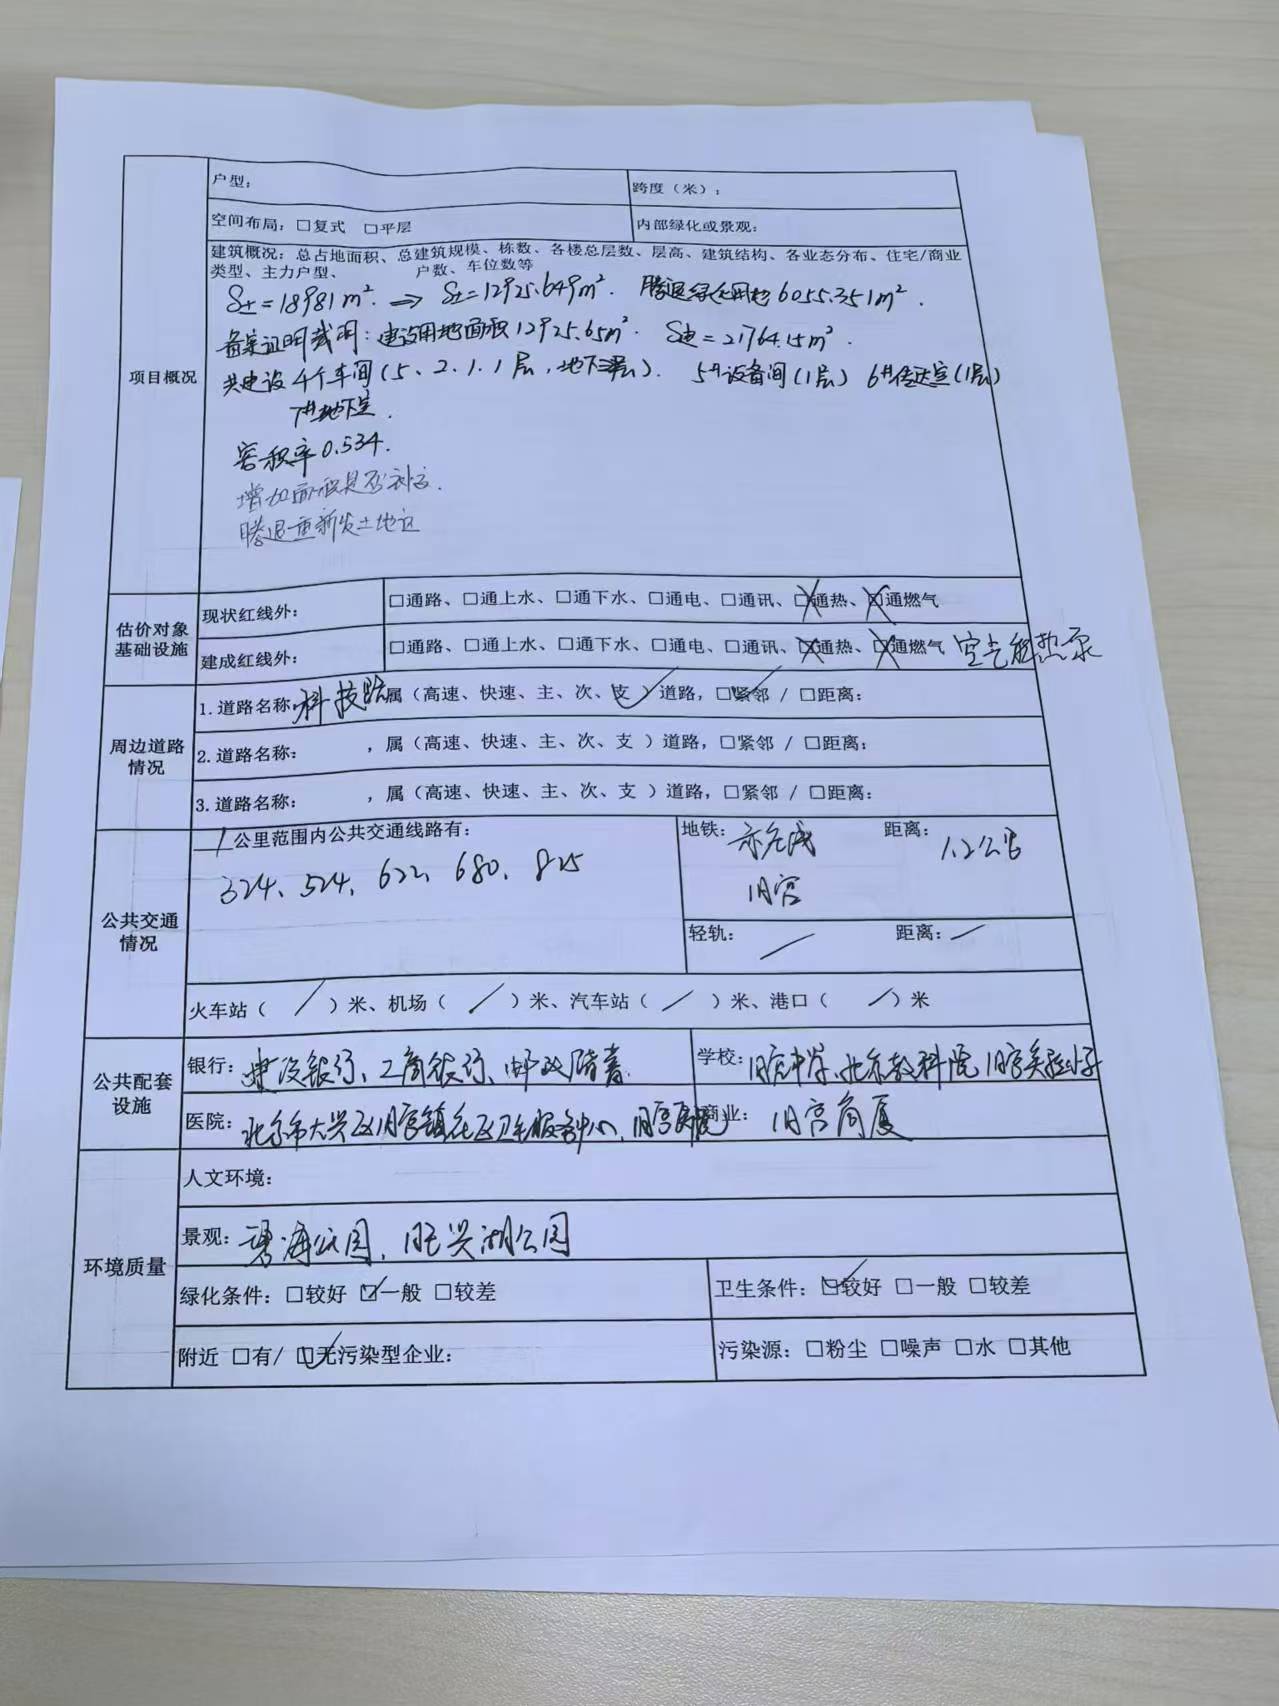 户型：
跨度（米）：
空间布局：□复式 □平层
内部绿化或景观：
建筑概况：总占地面积、总建筑规模、栋数、各楼总层数、层高、建筑结构、各业态分布、住宅/商业
类型、主力户型、 户数、车位数等
项目概况
S土=18981m². ⇒ S土=12925.649m². 腾退绿化用地6055.351m².
备案证明载明：建设用地面积12925.65m². S建=21764.15m².
共建设4个车间(5、2、1、1层，地下层). 5#设备间(1层) 6#传达室(1层)
7#地下室.
容积率0.534.
增加面积是否补交.
腾退重新发土地证
估价对象
基础设施
现状红线外：
□通路、□通上水、□通下水、□通电、□通讯、□通热、□通燃气
建成红线外：
□通路、□通上水、□通下水、□通电、□通讯、□通热、□通燃气 空气能热泵
周边道路
情况
1.道路名称：科技路 属（高速、快速、主、次、支 ）道路，☑紧邻 / □距离：
2.道路名称： ，属（高速、快速、主、次、支 ）道路，□紧邻 / □距离：
3.道路名称： ，属（高速、快速、主、次、支 ）道路，□紧邻 / □距离：
公共交通
情况
1公里范围内公共交通线路有：
324、524、622、680、825
地铁：亦庄线
旧宫
距离：1.2公里
轻轨： /
距离：/
火车站（ / ）米、机场（ / ）米、汽车站（ / ）米、港口（ / ）米
公共配套
设施
银行：建设银行、工商银行、邮政储蓄.
学校：旧宫中学、北京教科院 旧宫实验小学
医院：北京市大兴区旧宫镇社区卫生服务中心、旧宫医院
商业：旧宫商厦
环境质量
人文环境：
景观：碧海公园、旺兴湖公园
绿化条件：□较好 ☑一般 □较差
卫生条件：☑较好 □一般 □较差
附近 □有/ ☑无污染型企业：
污染源：□粉尘 □噪声 □水 □其他